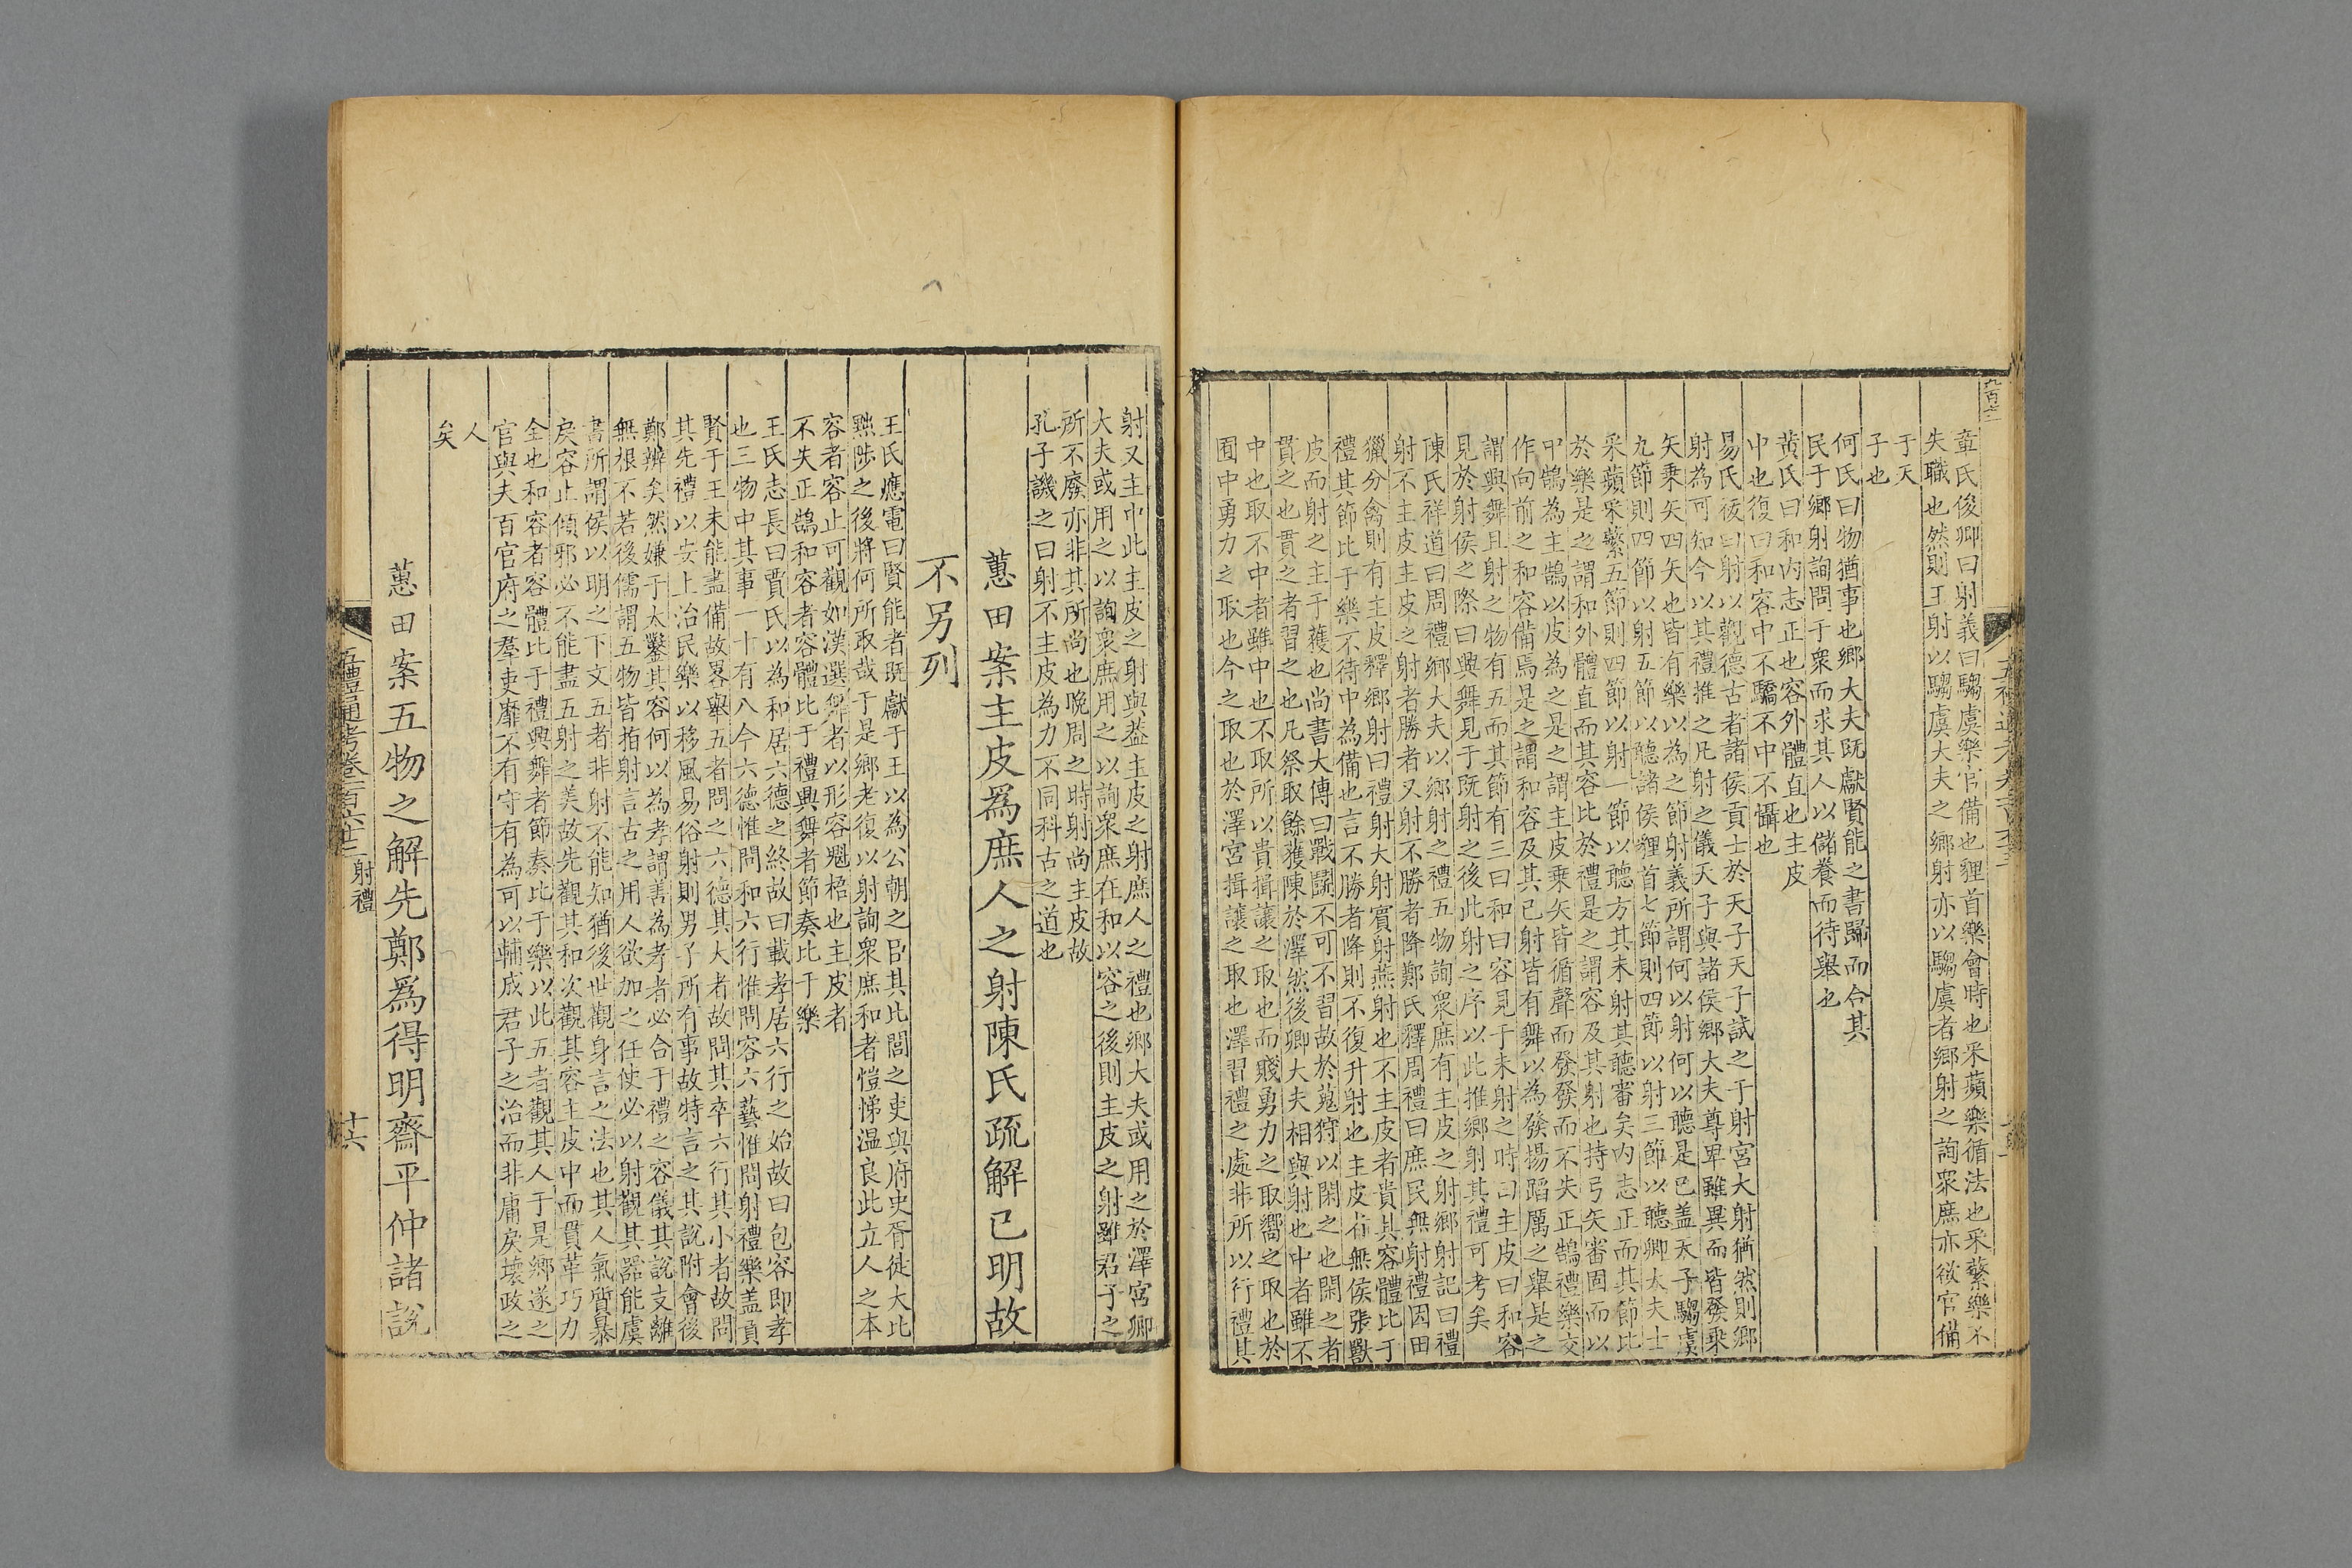 章氏俊卿曰射義曰騶虞樂官備也貍首樂會時也采蘋樂循法也采蘩樂不
失職也然則王射以騶虞大夫之鄉射亦以騶虞者鄉射之詢衆庶亦欲官備
于天
子也
何氏曰物猶事也鄉大夫旣獻賢能之書歸而合其
民于鄉射詢問于衆而求其人以儲養而待舉也
黄氏曰和内志正也容外體直也主皮
中也復曰和容中不驕不中不懾也
易氏祓曰射以觀德古者諸侯貢士於天子天子試之于射宮大射猶然則鄉
射為可知今以其禮推之凡射之儀天子與諸侯鄉大夫尊卑雖異而皆發乘
矢乘矢四矢也皆有樂以為之節射義所謂何以射何以聽是已盖天子騶虞
九節則四節以射五節以聽諸侯貍首七節則四節以射三節以聽卿大夫士
采蘋采蘩五節則四節以射一節以聽方其未射其聽審矣内志正而其節比
於樂是之謂和外體直而其容比於禮是之謂容及其射也持弓矢審固而以
中鵠為主鵠以皮為之是之謂主皮乗矢皆循聲而發發而不失正鵠禮樂交
作向前之和容備焉是之謂和容及其已射皆有舞以為發揚蹈厲之舉是之
謂興舞且射之物有五而其節有三曰和曰容見于未射之時曰主皮曰和容
見於射侯之際曰興舞見于既射之後此射之序以此推鄉射其禮可考矣
陳氏祥道曰周禮鄉大夫以鄉射之禮五物詢衆庶有主皮之射鄉射記曰禮
射不主皮主皮之射者勝者又射不勝者降鄭氏釋周禮曰庶民無射禮因田
獵分禽則有主皮釋鄉射曰禮射大射賓射燕射也不主皮者貴其容體比于
禮其節比于樂不待中為備也言不勝者降則不復升射也主皮者無侯張獸
皮而射之主于獲也尚書大傳曰戰鬬不可不習故於蒐狩以閑之也閑之者
貫之也貫之者習之也凡祭取餘獲陳於澤然後卿大夫相與射也中者雖不
中也取不中者雖中也不取所以貴揖讓之取也而賤勇力之取嚮之取也於
囿中勇力之取也今之取也於澤宮揖讓之取也澤習禮之處非所以行禮其
射又主中此主皮之射與葢主皮之射庶人之禮也鄉大夫或用之於澤宮卿
大夫或用之以詢衆庶用之以詢衆庶在和以容之後則主皮之射雖君子之
所不廢亦非其所尚也晚周之時射尚主皮故
孔子譏之曰射不主皮為力不同科古之道也
蕙田案主皮爲庶人之射陳氏疏解已明故
不另列
王氏應電曰賢能者旣獻于王以為公朝之臣其比閭之吏與府史胥徒大比
黜陟之後將何所取哉于是鄉老復以射詢衆庶和者愷悌温良此立人之本
容者容止可觀如漢選舞者以形容魁梧也主皮者
不失正鵠和容者容體比于禮興舞者節奏比于樂
王氏志長曰賈氏以為和居六德之終故曰載孝居六行之始故曰包容即孝
也三物中其事一十有八今六德惟問和六行惟問容六藝惟問射禮樂盖頁
賢于王未能盡備故畧舉五者問之六德其大者故問其卒六行其小者故問
其先禮以安上治民樂以移風易俗射則男子所有事故特言之其説附會後
鄭辨矣然嫌于太鑿其容何以為孝謂善為孝者必合于禮之容儀其説支離
無根不若後儒謂五物皆指射言古之用人欲加之任使必以射觀其器能虞
書所謂侯以明之下文五者非射不能知猶後世觀身言之法也其人氣質暴
戾容止傾邪必不能盡五射之美故先觀其和次觀其容主皮中而貫革巧力
全也和容者容體比于禮興舞者節奏比于樂以此五者觀其人于是鄉遂之
官與夫百官府之羣吏靡不有守有為可以輔成君子之治而非庸戾壞政之
人
矣
蕙田案五物之解先鄭爲得明齋平仲諸說
五禮通考卷一百六十三 射禮
十六